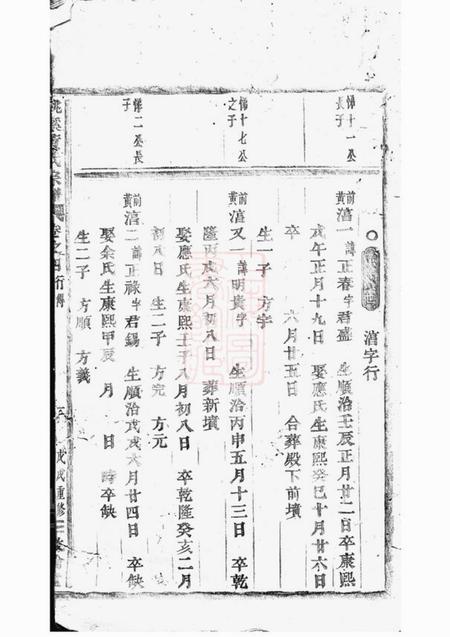 湇字行
悌十一公長子
前黃湇一諱正春字君盛 生順治壬辰正月廿二日卒康熙
戊午正月十九日 娶應氏生康熙癸巳十月廿六日
卒 六月廿五日 合葬殿下前墳
生一子 方字
悌十七公之子
前黃湇又一諱明貴字 生順治丙申五月十三日 卒乾
隆丙戌六月初八日 葬新墳
娶應氏生康熙壬子八月初八日 卒乾隆癸亥二月
初八日 生二子 方完 方元
悌二公長子
前黃湇二諱正祿字君錫 生順治戊戌六月廿四日 卒缺
娶余氏生康熙甲辰 月 日 時卒缺
生二子 方順 方義
氏宗譜 卷之四行傳
三 戊戌重修